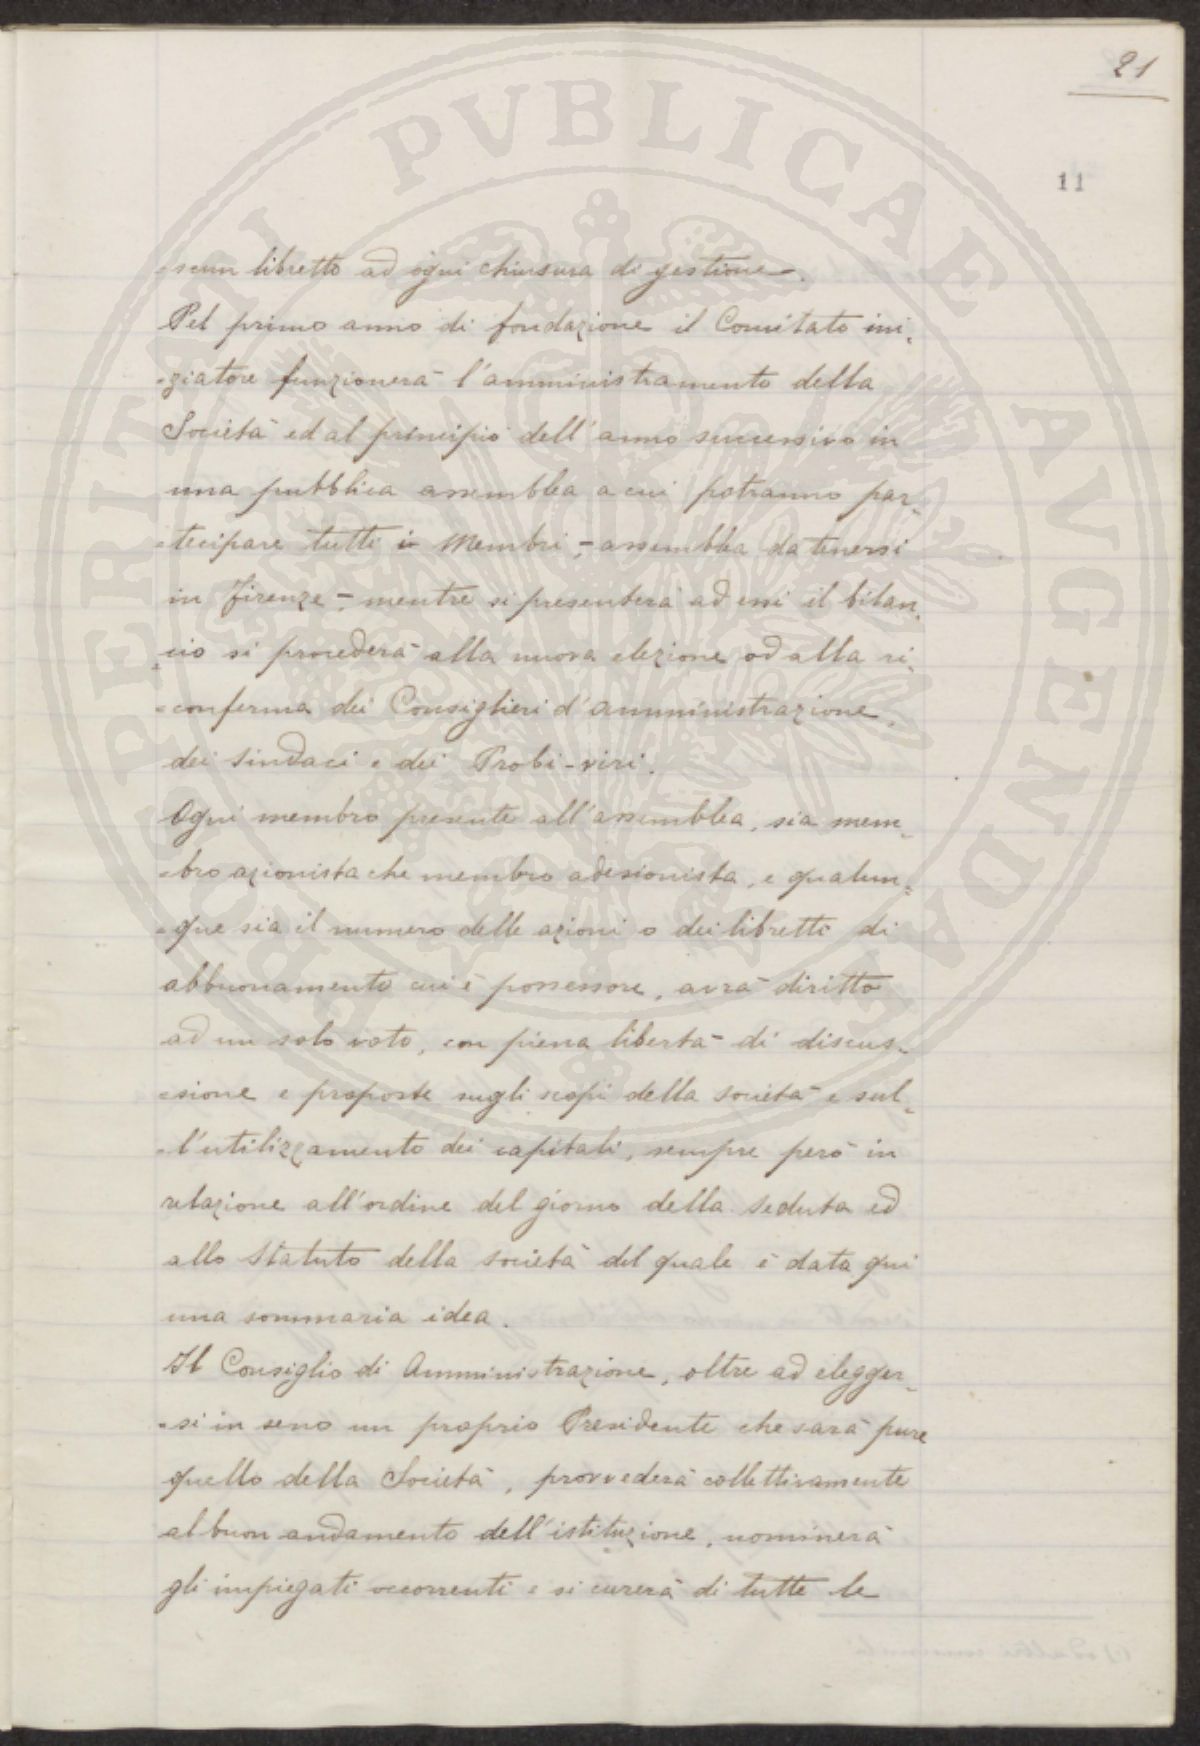 21
11
-scun libretto ad ogni chiusura di gestione.
Pel primo anno di fondazione il Comitato ini-
-ziatore funzionerà l'amministramento della
Società ed al principio dell'anno successivo in
una pubblica assemblea a cui potranno par-
-tecipare tutti i Membri, - assemblea da tenersi
in Firenze -, mentre si presenterà ad essi il bilan-
-cio si procederà alla nuova elezione od alla ri-
-conferma dei Consiglieri d'amministrazione,
dei Sindaci e dei Probi-viri.
Ogni membro presente all'assemblea, sia mem-
-bro azionista che membro adesionista, e qualun-
-que sia il numero delle azioni o dei libretti di
abbuonamento cui è possessore, avrà diritto
ad un solo voto, con piena libertà di discus-
-sione e proposte sugli scopi della società e sul-
-l'utilizzamento dei capitali, sempre però in
relazione all'ordine del giorno della seduta ed
allo Statuto della società del quale è data qui
una sommaria idea.
Il Consiglio di Amministrazione, oltre ad elegger-
-si in seno un proprio Presidente che sarà pure
quello della Società, provvederà collettivamente
al buon andamento dell'istituzione, nominerà
gli impiegati occorrenti e si curerà di tutte le
PROSPERITATI PVBLICAE AVGENDAE